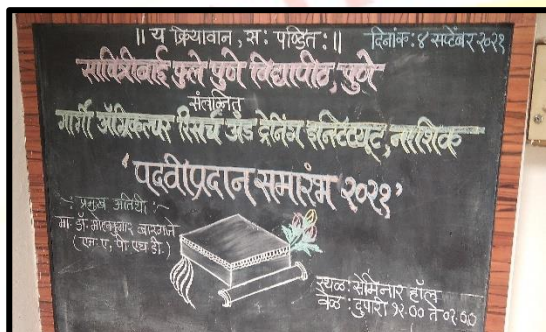 || य क्रियावान, स: पण्डित: ||
दिनांक: ४ सप्टेंबर २०२१
सावित्रीबाई फुले पुणे विद्यापीठ, पुणे
संलग्नित
गार्गी ॲग्रिकल्चर रिसर्च अँड ट्रेनिंग इन्स्टिट्यूट, नाशिक
'पदवीप्रदान समारंभ २०२१'
: प्रमुख अतिथी :
मा. डॉ.
(एम.ए, पी.एच.डी.)
स्थळ: सेमिनार हॉल
वेळ: दुपारी १२.०० ते ०२.००